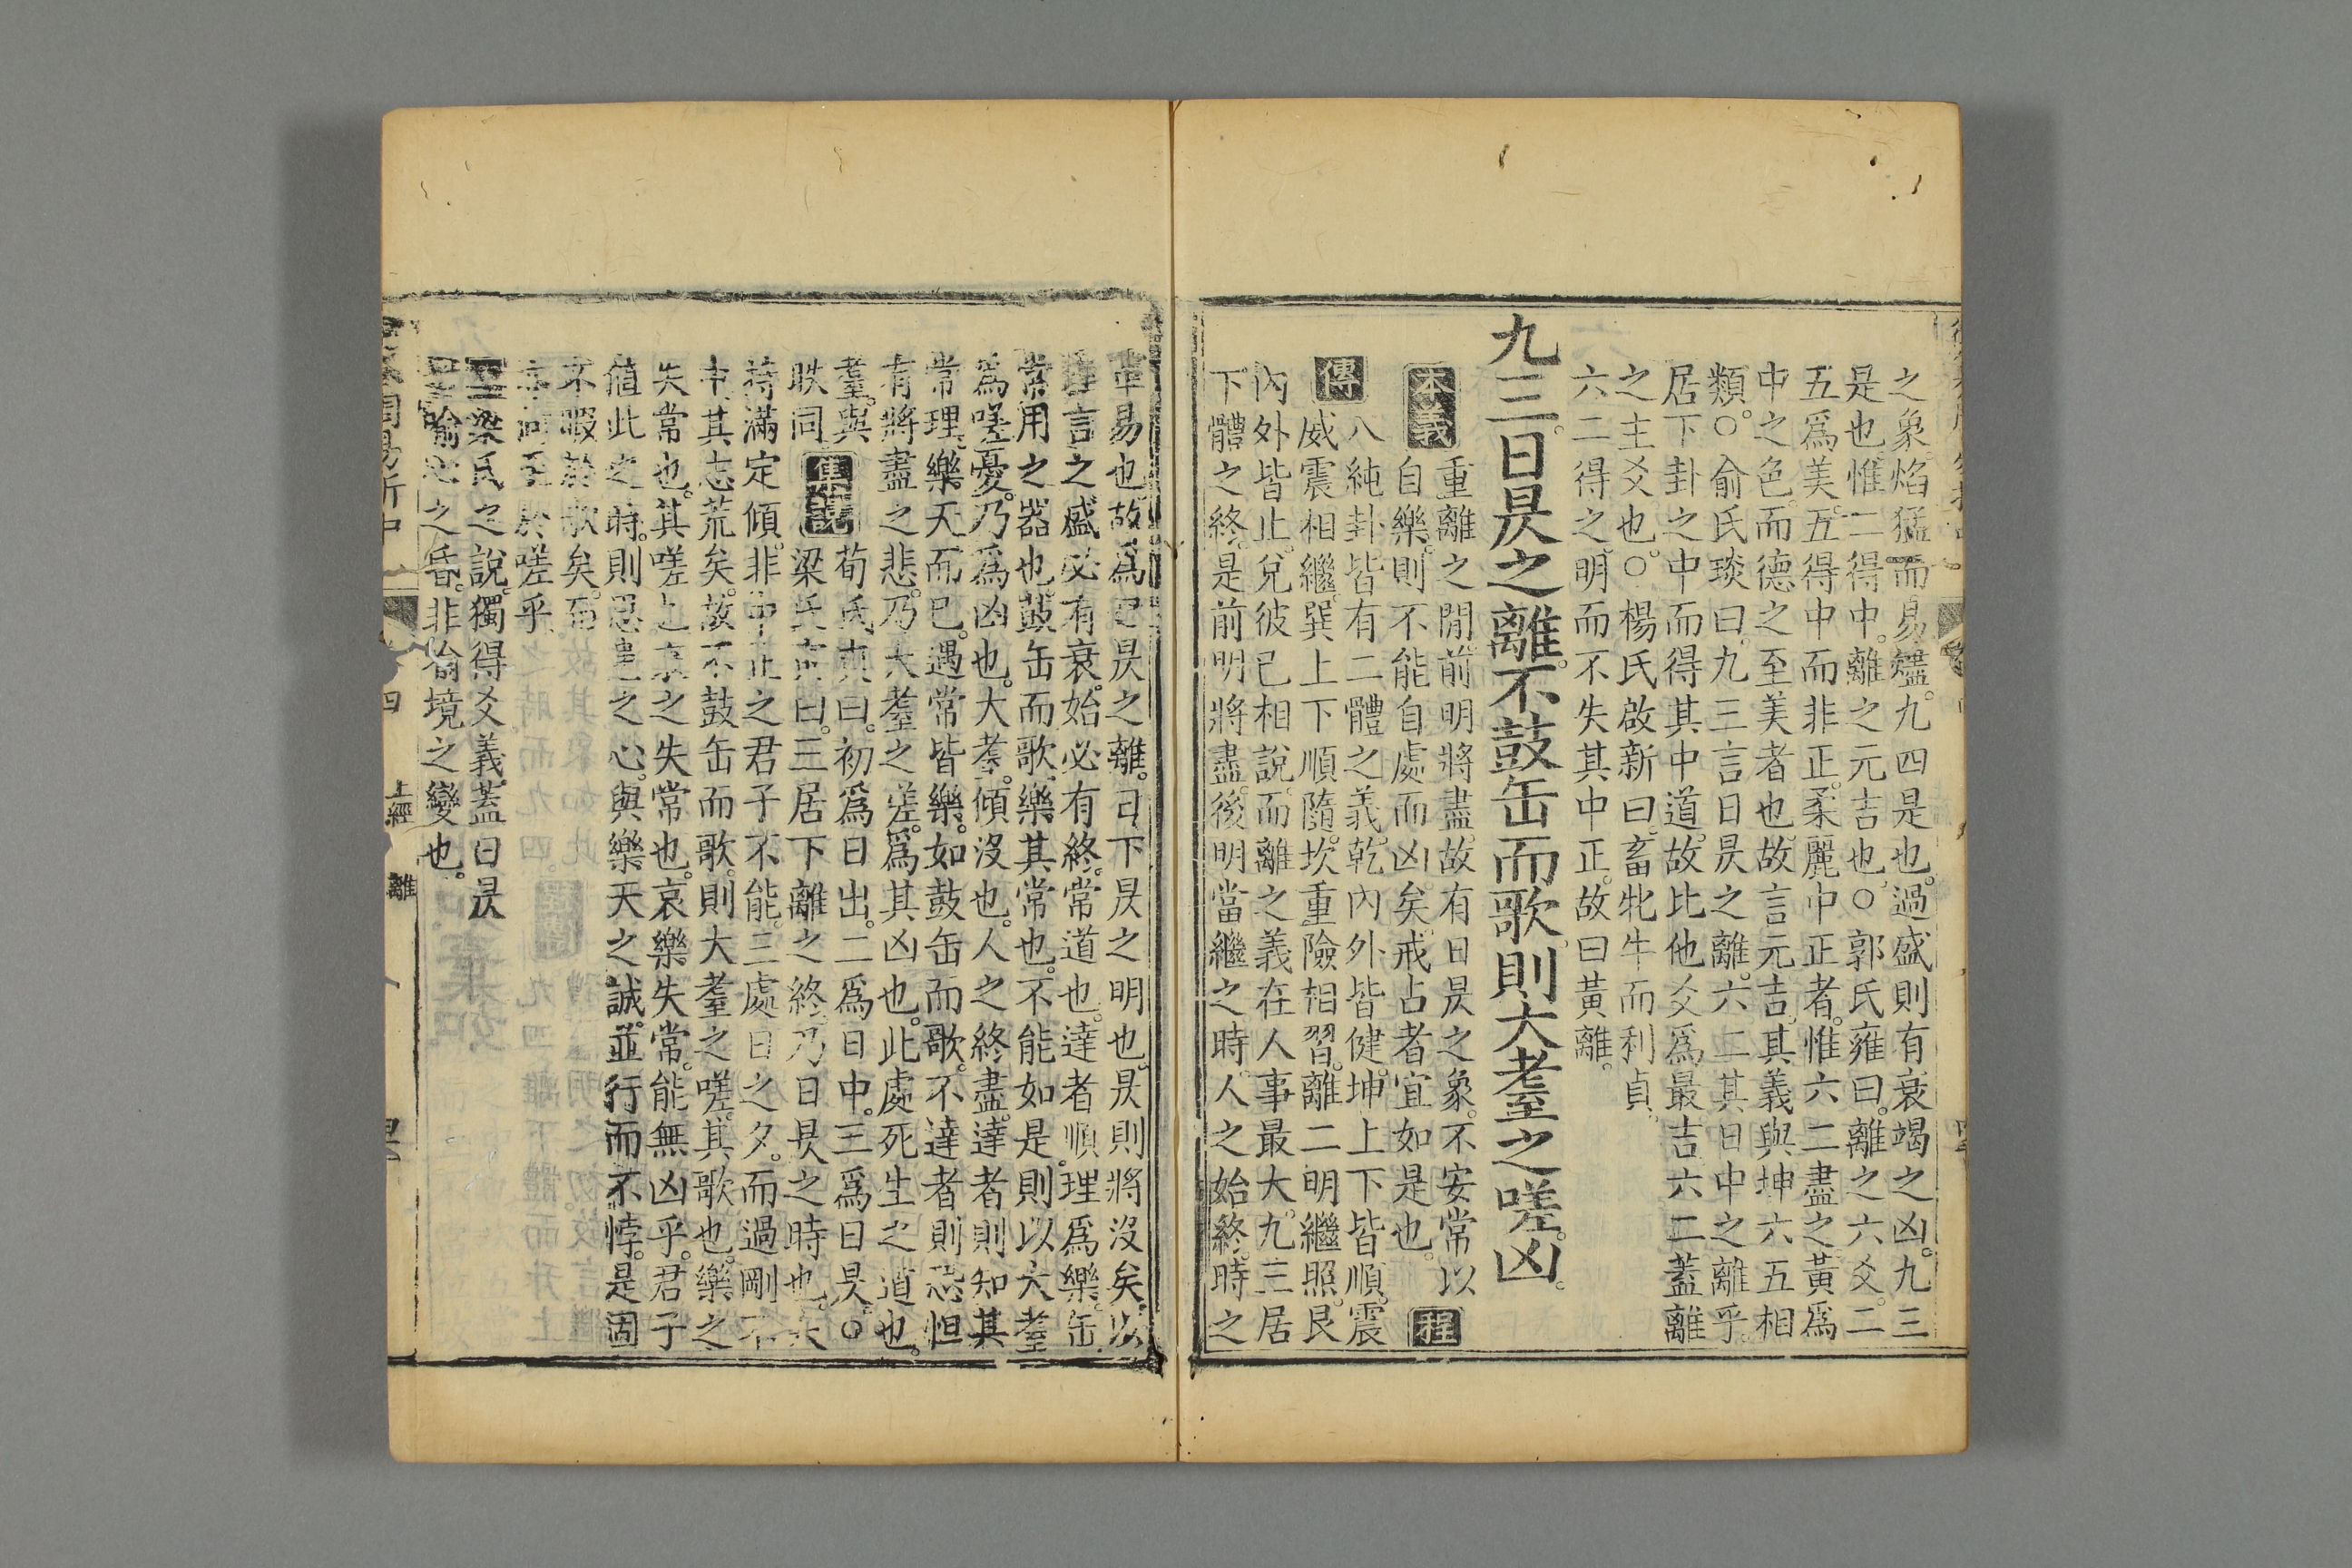 之象。焰猛而易燼。九四是也。過盛則有衰竭之凶。九三
是也。惟二得中。離之元吉也。○郭氏雍曰。離之六爻。二
五爲美。五得中而非正。柔麗中正者。惟六二盡之。黃爲
中之色。而德之至美者也。故言元吉。其義與坤六五相
類。○俞氏琰曰。九三言日昃之離。六二其日中之離乎。
居下卦之中而得其中道。故比他爻爲最吉。六二蓋離
之主爻也。○楊氏啟新曰。畜牝牛而利貞。
六二得之。明而不失其中正。故曰黃離。
九三。日昃之離。不鼓缶而歌。則大耋之嗟。凶。
本義 重離之間。前明將盡。故有日昃之象。不安常以
自樂。則不能自處而凶矣。戒占者宜如是也。 程
傳 八純卦皆有二體之義。乾內外皆健。坤上下皆順。震
威震相繼。巽上下順隨。坎重險相習。離二明繼照。艮
內外皆止。兌彼己相說。而離之義在人事最大。九三居
下體之終。是前明將盡。後明當繼之時。人之始終。時之
革易也。故爲日昃之離。日下昃之明也。昃則將沒矣。以
理言之。盛必有衰。始必有終。常道也。達者順理爲樂。缶
常用之器也。鼓缶而歌。樂其常也。不能如是。則以大耋
爲嗟憂。乃爲凶也。大耋。傾沒也。人之終盡。達者則知其
常理。樂天而已。遇常皆樂。如鼓缶而歌。不達者則恐恒
有將盡之悲。乃大耋之嗟。爲其凶也。此處死生之道也。
耋。與
昳同 集說 荀氏爽曰。初爲日出。二爲日中。三爲日昃。○
梁氏寅曰。三居下離之終。乃日昃之時也。夫
持滿定傾。非中正之君子不能。三處日之夕。而過剛不
中。其志荒矣。故不鼓缶而歌。則大耋之嗟。其歌也。樂之
失常也。其嗟也。哀之失常也。哀樂失常。能無凶乎。君子
值此之時。則思患之心。與樂天之誠。並行而不悖。是固
不暇於歌矣。而
亦何至於嗟乎
梁氏之說。獨得爻義。蓋日昃
喻心之昏。非喻境之變也。
周易折中
四
上經
離